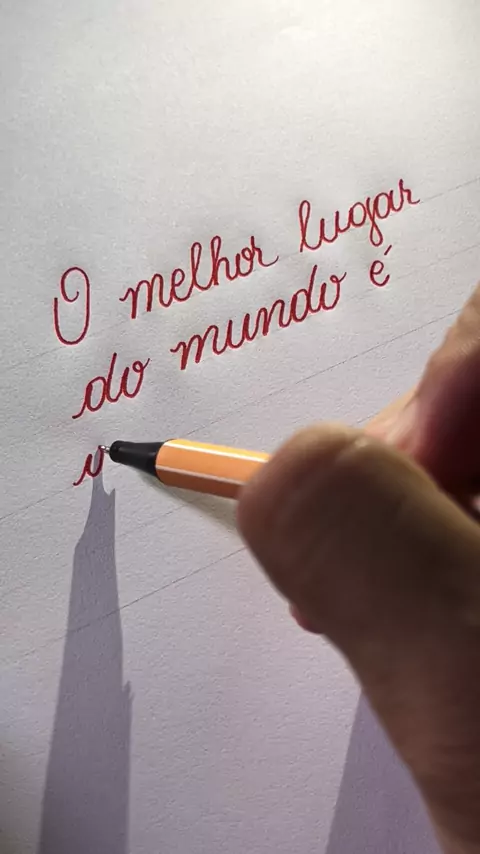 O melhor lugar
do mundo é